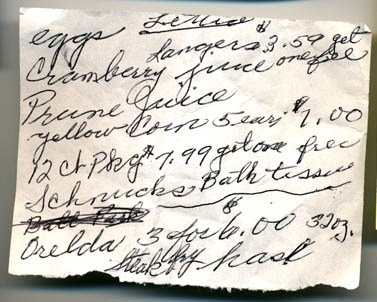 eggs Lettuce
Langers $3.59 get
Cramberry juice one free
Prune Juice
yellow Corn 5 ears $1.00
12 ct Pkg $7.99 get one free
Schnucks Bath tissue
Orelda 3 for $6.00 32 oz.
Steak fry hash